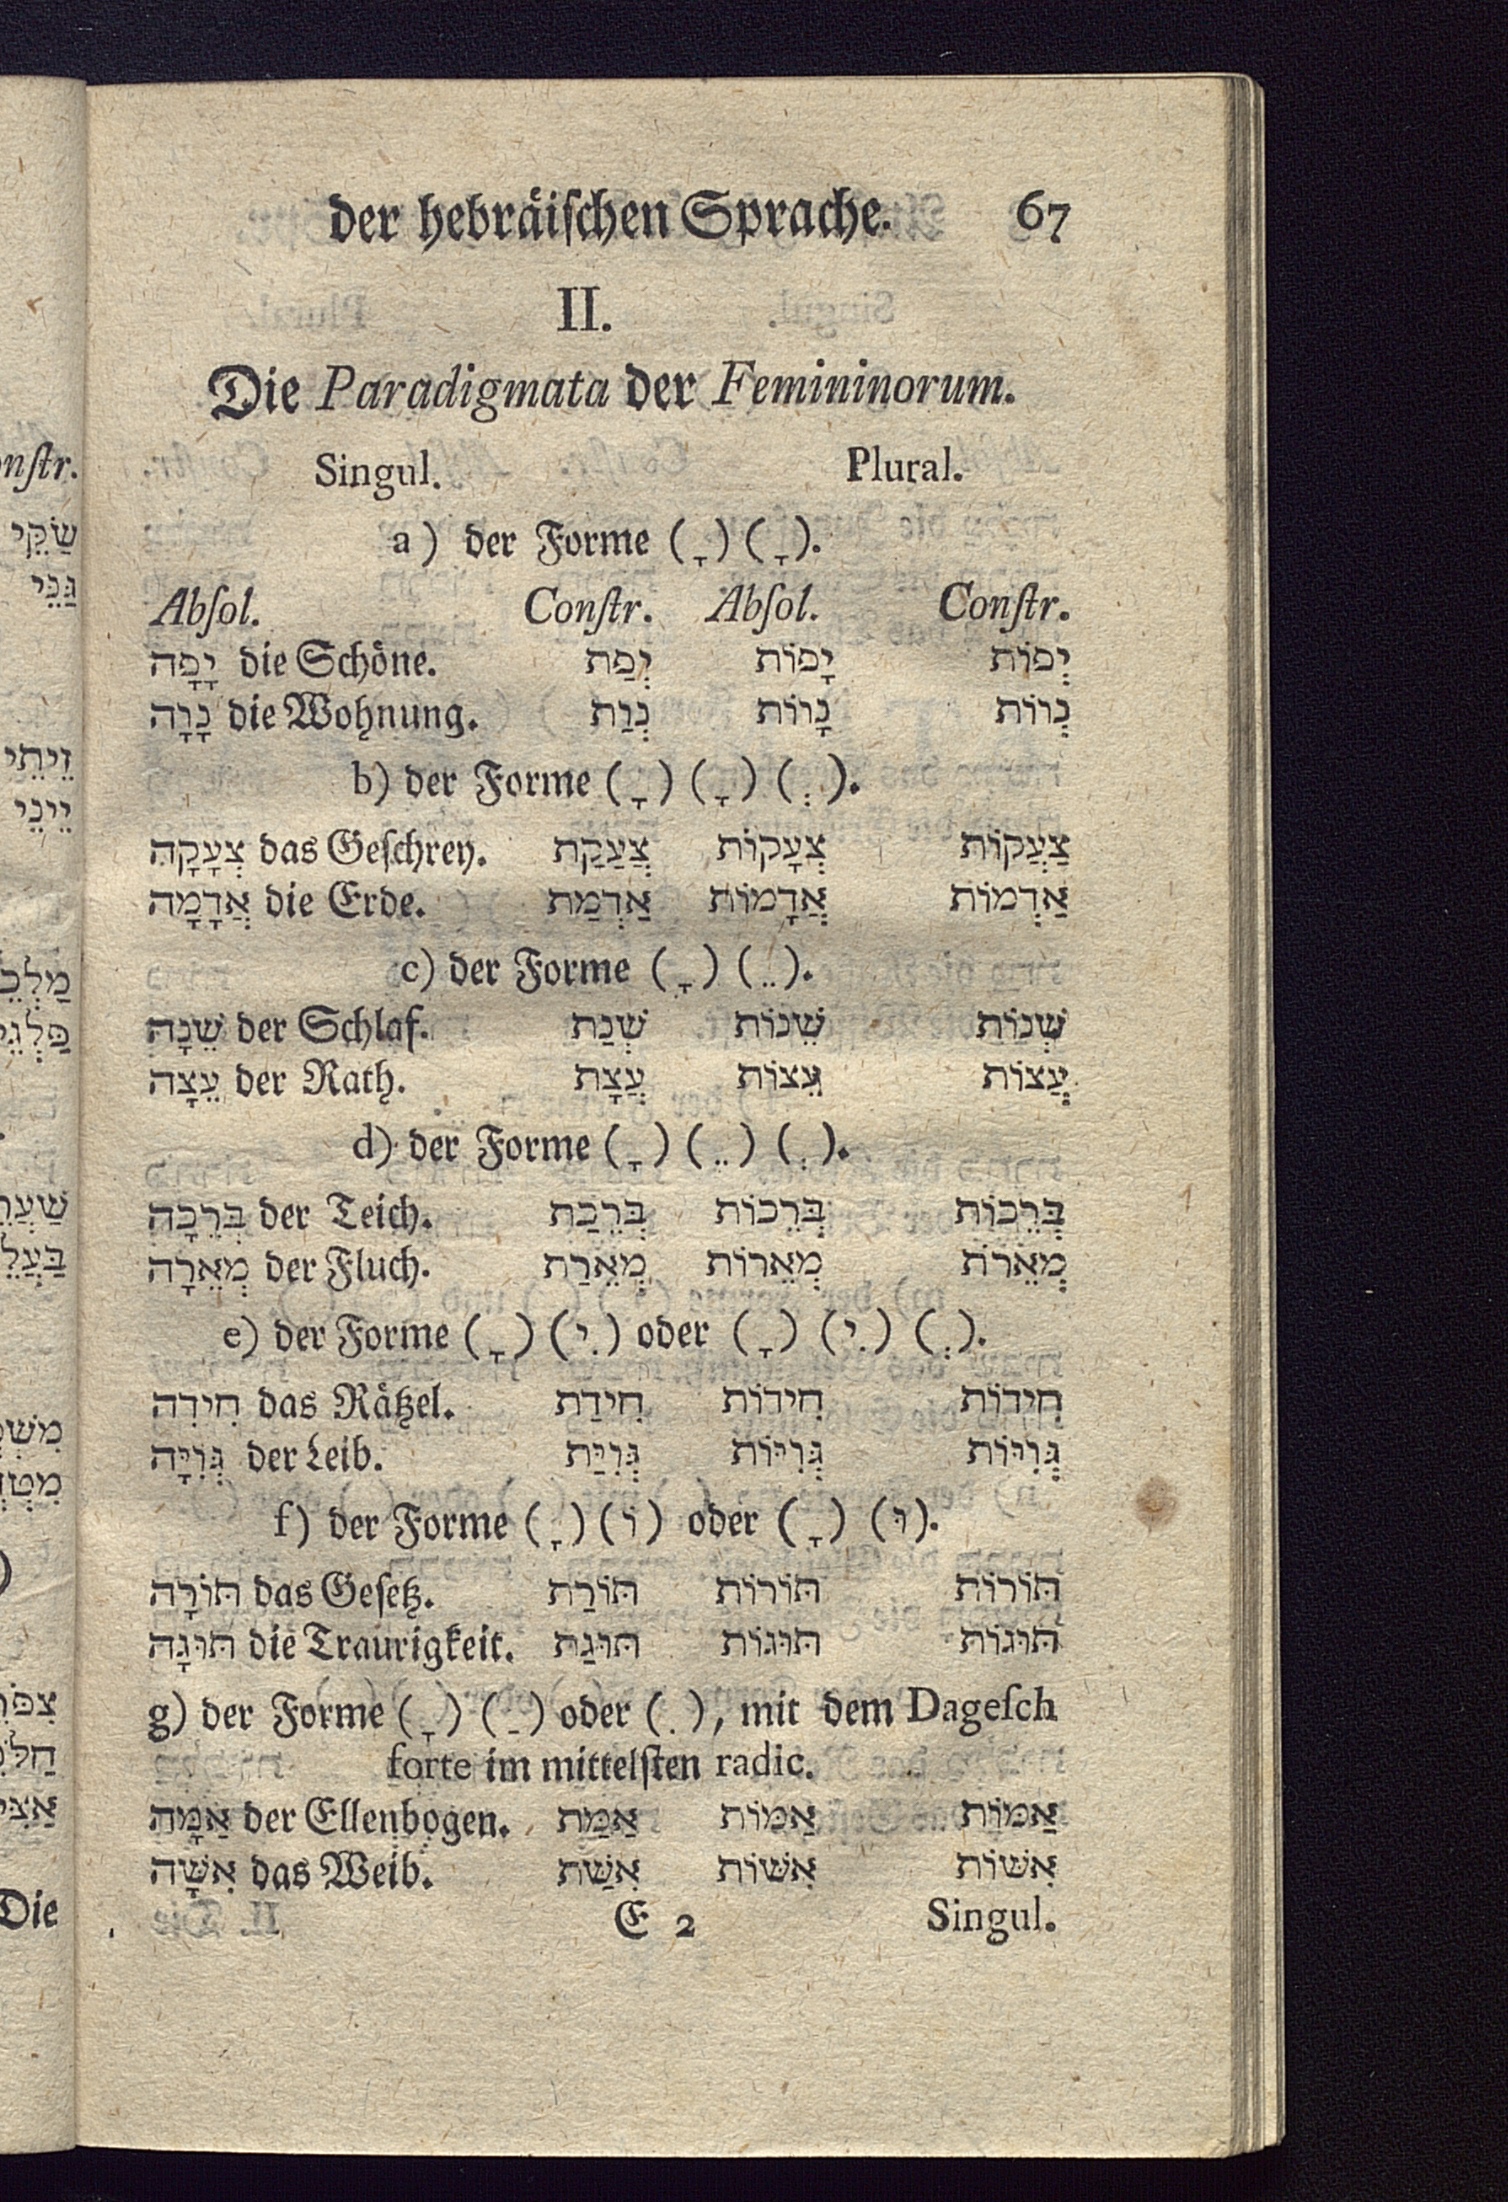 der hebräiſchen Sprache. 67
II.
Die Paradigmata der Femininorum.
Singul. Plural.
a) der Forme (ָ) (ָ).
Abſol. Conſtr. Abſol. Conſtr.
יָפָה die Schöne. יְפַת יָפוֹת יְפוֹת
נָוָה die Wohnung. נְוַת נָווֹת נְווֹת
b) der Forme (ָ) (ָ) (ְ).
צְעָקָה das Geſchrey. צֲעַקַת צְעָקוֹת צַעֲקוֹת
אֲדָמָה die Erde. אַדְמַת אֲדָמוֹת אַדְמוֹת
c) der Forme (ָ) (ֵ).
שֵׁנָה der Schlaf. שְׁנַת שֵׁנוֹת שְׁנוֹת
עֵצָה der Rath. עֲצָת עֵצוֹת עֲצוֹת
d) der Forme (ָ) (ֵ) (ְ).
בְּרֵכָה der Teich. בְּרֵכַת בְּרֵכוֹת בְּרֵכוֹת
מְאֵרָה der Fluch. מְאֵרַת מְאֵרוֹת מְאֵרֹת
e) der Forme (ָ) (ִי) oder (ָ) (ִי) (ְ).
חִידִה das Rätzel. חִידַת חִידוֹת חִידוֹת
גְּוִיָּה der Leib. גְּוִיַּת גְּוִיּוֹת גְּוִיּוֹת
f) der Forme (ָ) (וֹ) oder (ָ) (וּ).
תּוֹרָה das Geſetz. תּוֹרַת תּוֹרוֹת תּוֹרוֹת
תּוּגָה die Traurigkeit. תּוּגַת תּוּגוֹת תּוּגוֹת
g) der Forme (ָ) (ַ) oder (ִ), mit dem Dageſch
forte im mittelſten radic.
אַמָּה der Ellenbogen. אַמַּת אַמּוֹת אַמּוֹת
אִשָּׁה das Weib. אִשַּׁת אִשּׁוֹת אִשּׁוֹת
E 2 Singul.
onſtr.
שַׂקֵּי
גַּנֵּי
זֵיתֵי
יֵינֵי
Die